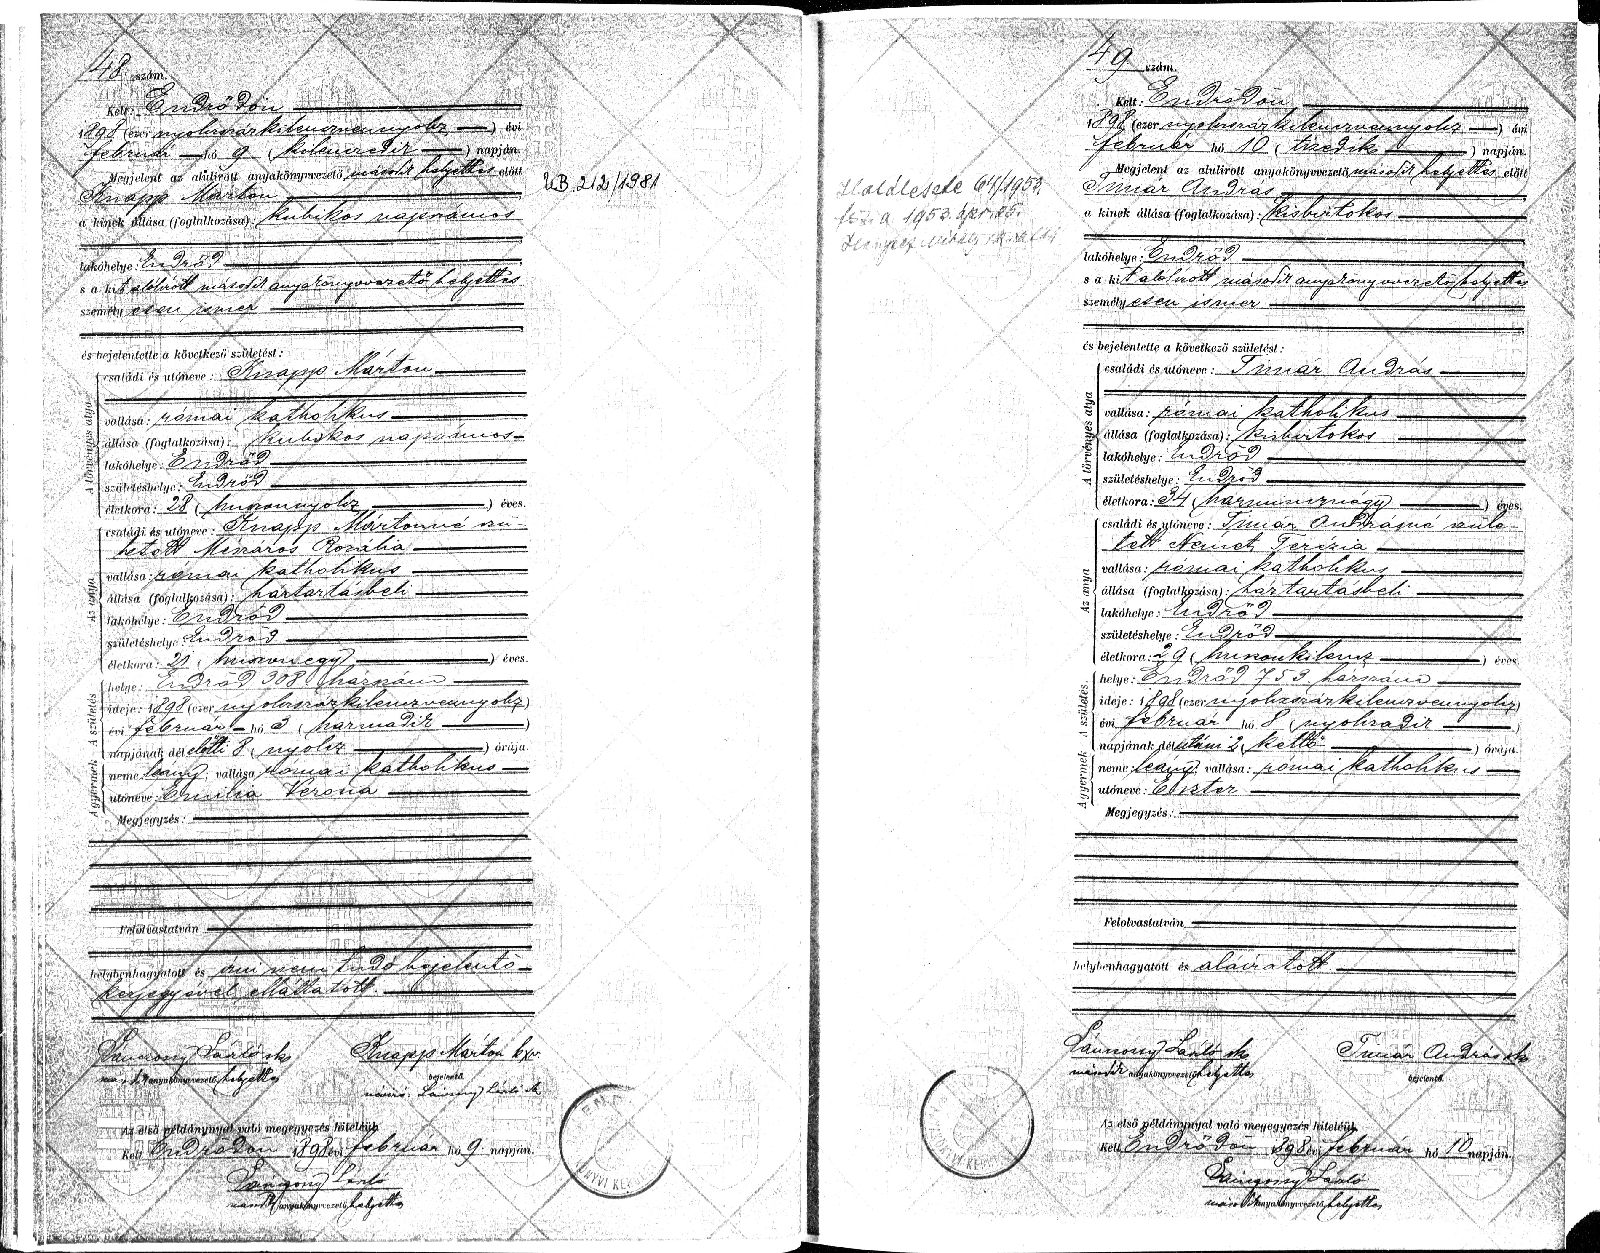 48 szám.
Kelt: Endrődön
1898 (ezer nyolcszázkilenczvennyolcz) évi
február hó 9 (kilenczedik) napján.
Megjelent az alulirott anyakönyvvezető másodit helyettes előtt
Knapp Márton
a kinek állása (foglalkozása): kubikos napszámos
lakóhelye: Endrőd
s a kit alulirott másodit anyakönyvvezető helyettes
személyesen ismer
és bejelentette a következő születést:
A törvényes atya
családi és utóneve: Knapp Márton
vallása: római katholikus
állása (foglalkozása): kubikos napszámos
lakóhelye: Endrőd
születéshelye: Endrőd
életkora: 28 (huszonnyolcz) éves.
Az anya
családi és utóneve: Knapp Mártonné szü-
letett Mészáros Rozália
vallása: római katholikus
állása (foglalkozása): háztartásbeli
lakóhelye: Endrőd
születéshelye: Endrőd
életkora: 21 (huszonegy) éves.
A születés
helye: Endrőd 308 házszám
ideje: 1898 (ezer nyolcszázkilenczvennyolcz)
évi február hó 3 (harmadik)
napjának dél előtti 8 (nyolcz) órája.
A gyermek
neme: leány; vallása: római katholikus
utóneve: Emilia Verona
Megjegyzés:
Felolvastatván
helybenhagyatott és irni nem tudó bejelentő
kézjegyével elláttatott.
Lányony László sk Knapp Márton kxv.
másodit anyakönyvvezető helyettes bejelentő.
Az első példánynyal való megegyezés hiteléül:
Kelt Endrődön 1898 évi február hó 9 napján.
László
másodit anyakönyvvezető helyettes
UB. 212/1981
49 szám.
Kelt: Endrődön
1898 (ezer nyolcszázkilenczvennyolcz) évi
február hó 10 (tizedik) napján.
Megjelent az alulirott anyakönyvvezető másodit helyettes előtt
Timár András
a kinek állása (foglalkozása): kisbirtokos
lakóhelye: Endrőd
s a kit alulirott másodit anyakönyvvezető helyettes
személyesen ismer
és bejelentette a következő születést:
A törvényes atya
családi és utóneve: Timár András
vallása: római katholikus
állása (foglalkozása): kisbirtokos
lakóhelye: Endrőd
születéshelye: Endrőd
életkora: 34 (harmincznégy) éves.
Az anya
családi és utóneve: Timár Andrásné szüle-
tett Német Terézia
vallása: római katholikus
állása (foglalkozása): háztartásbeli
lakóhelye: Endrőd
születéshelye: Endrőd
életkora: 29 (huszonkilencz) éves.
A születés
helye: Endrőd 753 házszám
ideje: 1898 (ezer nyolcszázkilenczvennyolcz)
évi február hó 8 (nyolczadik)
napjának délutáni 2 (kettő) órája.
A gyermek
neme: leány; vallása: római katholikus
utóneve: Eszter
Megjegyzés:
Felolvastatván
helybenhagyatott és aláiratott
László sk Timár András sk
másodit anyakönyvvezető helyettes bejelentő.
Az első példánynyal való megegyezés hiteléül:
Kelt Endrődön 1898 évi február hó 10 napján.
László
másodit anyakönyvvezető helyettes
Haláleset 64/1953.
1953. ápr. 25.
Mihály